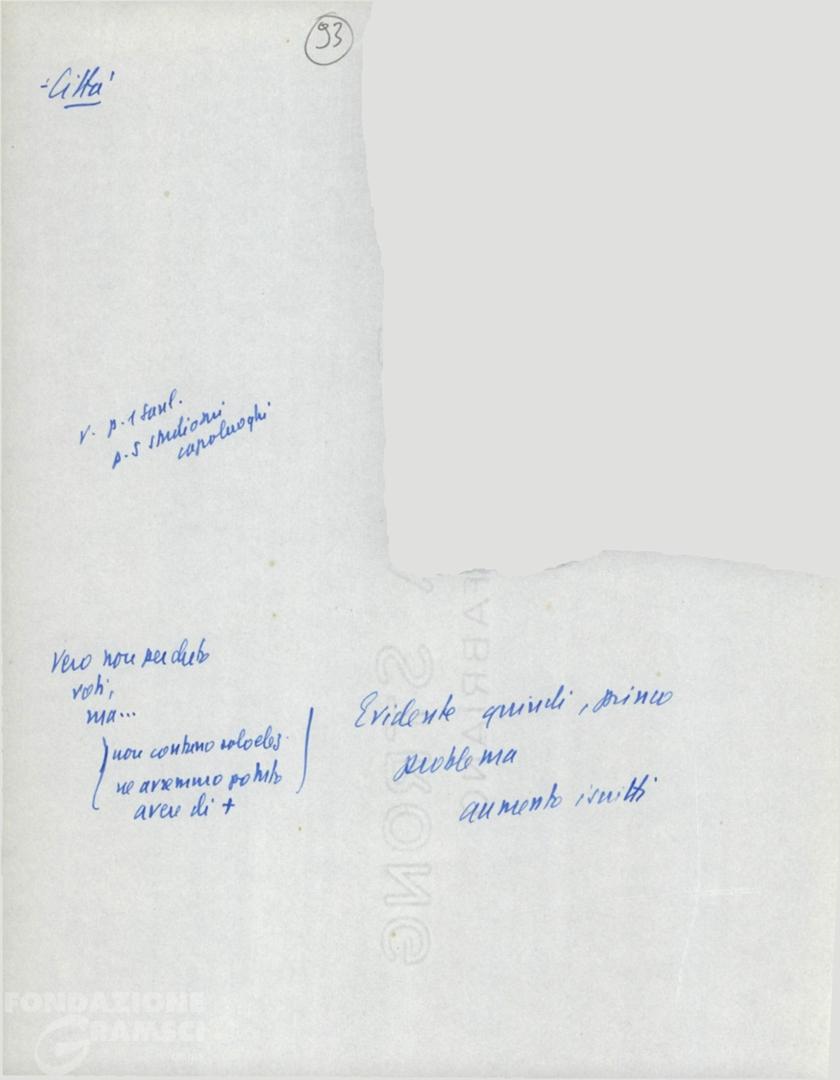 93
- Città
v. p. 1
p. 5
capoluoghi
Vero non perduto
voti,
ma...
non contano solo
ne avremmo potuto
avere di +
Evidente quindi, primo
problema
aumento iscritti
FABRIANO
STRONG
FONDAZIONE
GRAMSCI